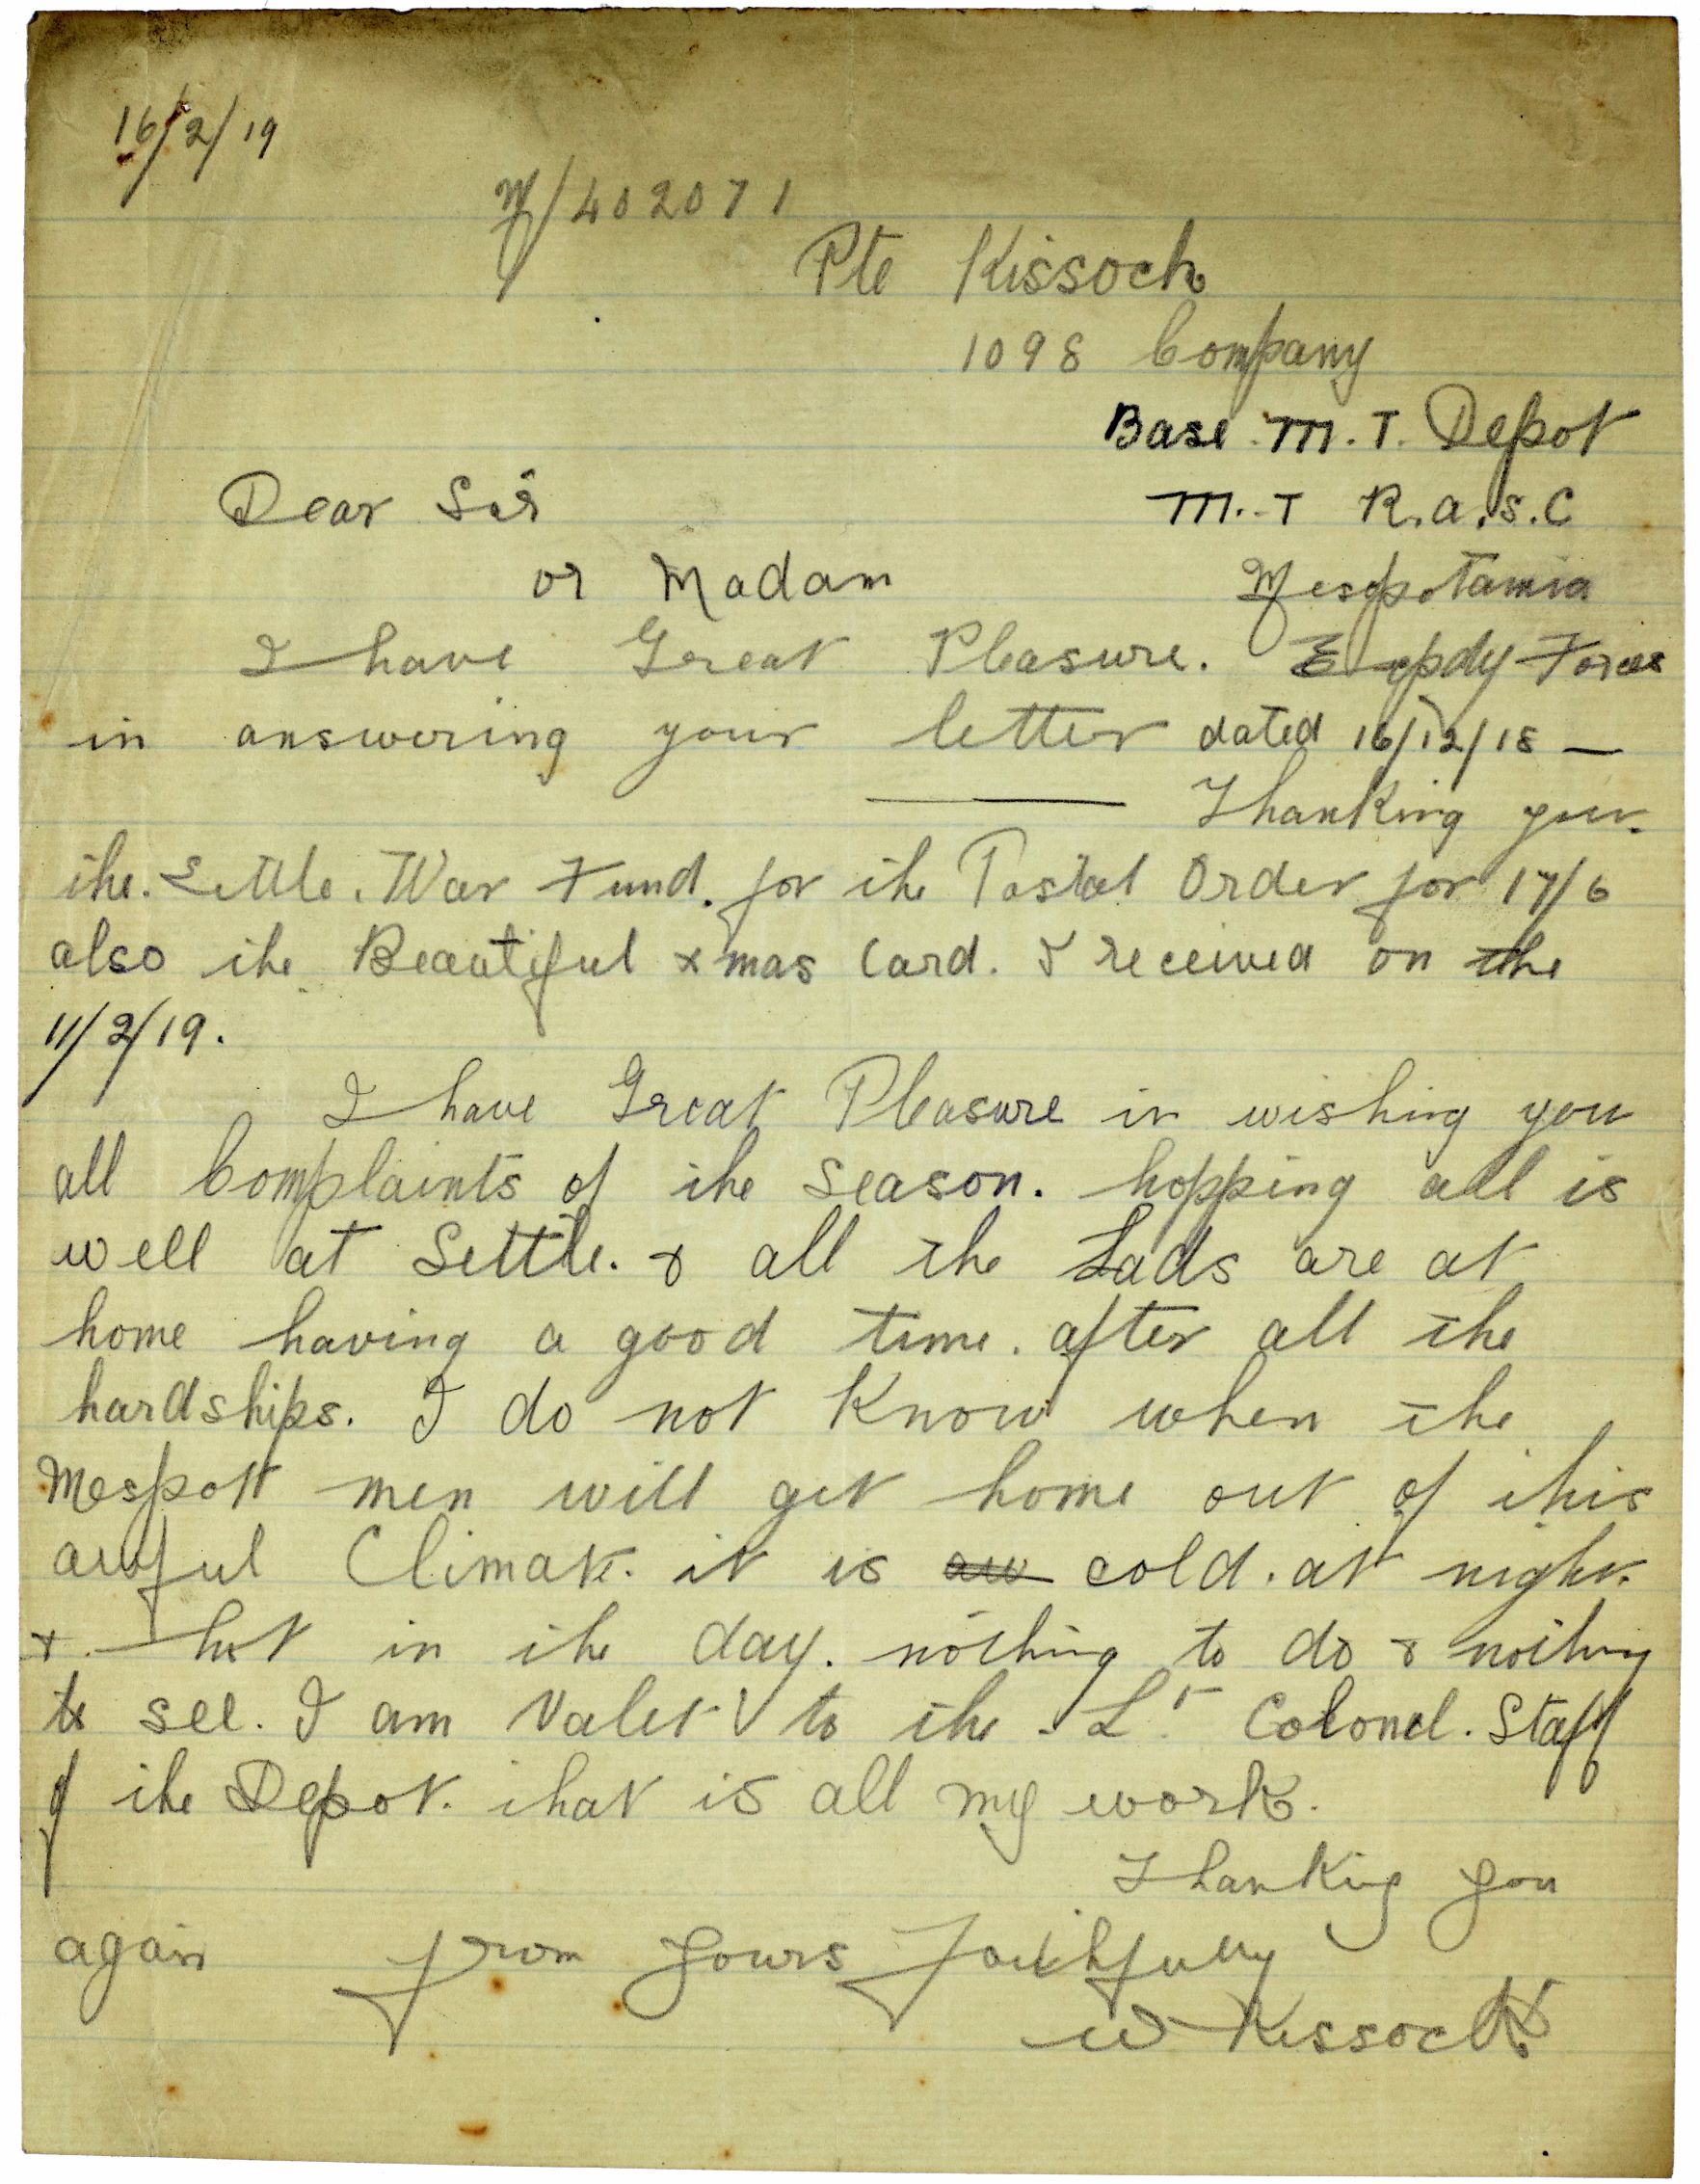 16/2/19
M/402071
Pte Kissock
1098 Company
Base. M. T. Depot
Dear Sir
M. T R.a.S.C
or Madam
Mesopotamia
I have Great Pleasure. Expdy Forces
in answering your letter dated 16/12/18 —
Thanking you.
the. Settle. War Fund. for the Postal Order for 17/6
also the Beautiful xmas Card. I received on the
11/2/19.
I have Great Pleasure in wishing you
all Complaints of the Season. hopping all is
well at Settle. & all the Lads are at
home having a good time. after all the
hardships. I do not Know when the
Mespott men will get home out of this
awful Climate. it is aw cold. at night.
& hot in the day. nothing to do & nothing
to see. I am Valet to the Lt Colonel. Staff
of the Depot. that is all my work.
Thanking you
again from Yours Faithfully
W Kissock